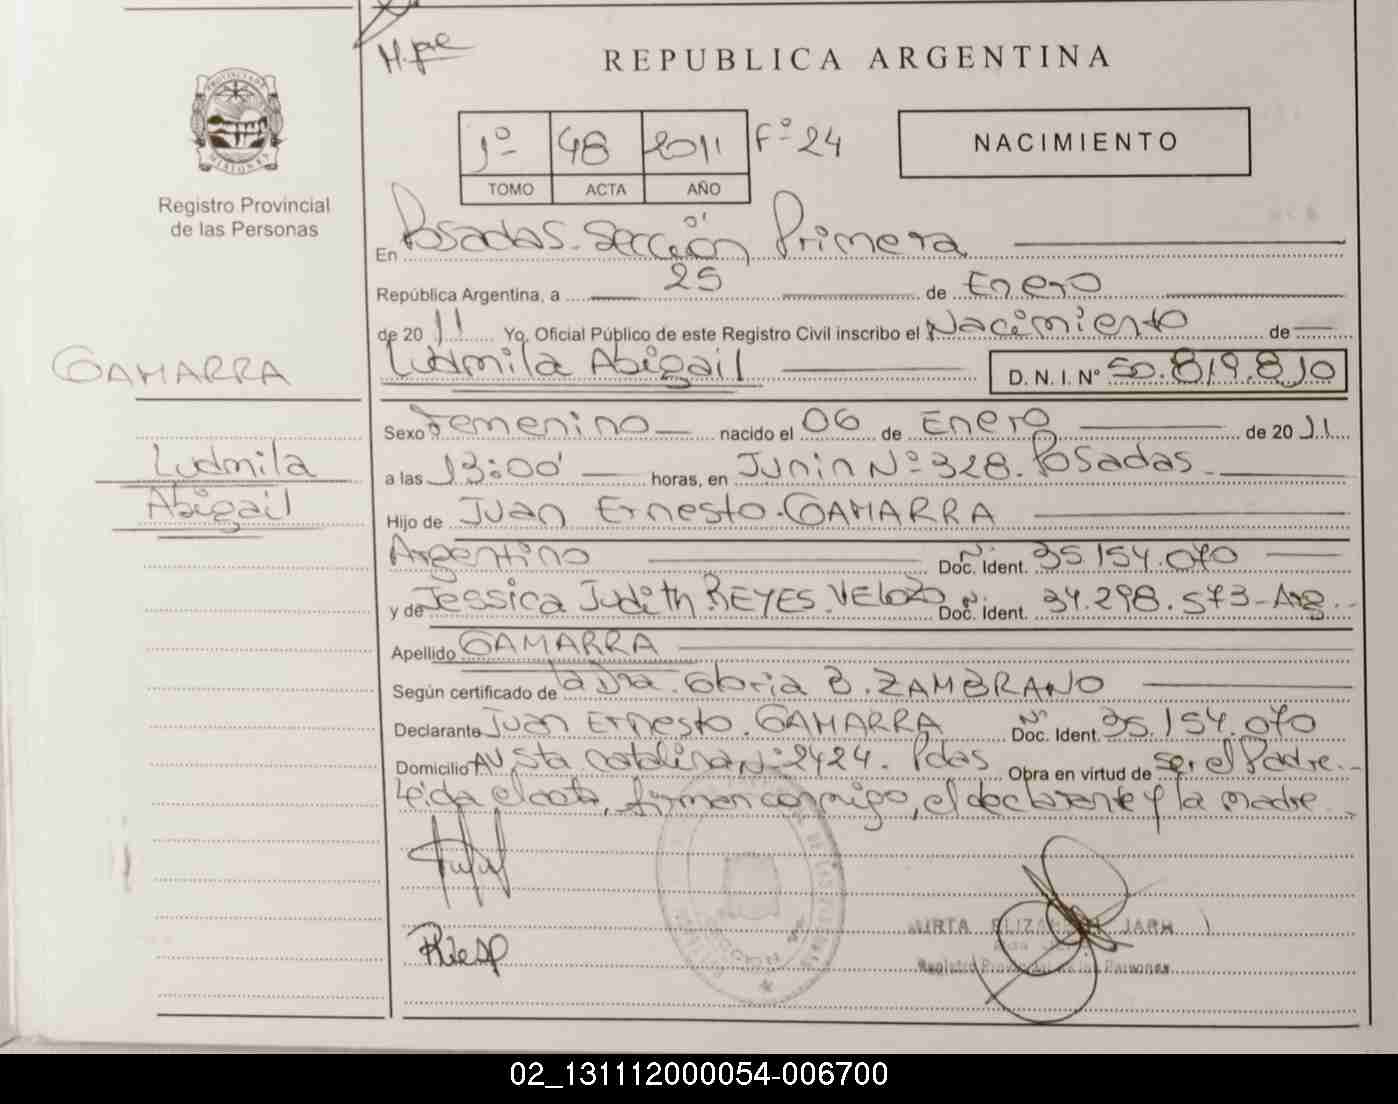 H. pe
REPUBLICA ARGENTINA
PROVINCIA DE MISIONES
1º 48 2011 Fº 24
TOMO ACTA AÑO
NACIMIENTO
Registro Provincial
de las Personas
En Posadas. Sección Primera
República Argentina, a 25 de Enero
de 2011 Yo, Oficial Público de este Registro Civil inscribo el Nacimiento de
GAMARRA
Ludmila Abigail D.N.I. Nº 50.819.810
Sexo Femenino nacido el 06 de Enero de 2011
Ludmila
Abigail
a las 13:00' horas, en Junin Nº 328. Posadas
Hijo de Juan Ernesto GAMARRA
Argentino Doc. Ident. Nº 35.154.070
y de Jessica Judith REYES VELOZO Doc. Ident. Nº 34.298.573-Arg.
Apellido GAMARRA
Según certificado de la Dra. Gloria B. ZAMBRANO
Declarante Juan Ernesto GAMARRA Doc. Ident. Nº 35.154.070
Domicilio AV Sta Catalina Nº 2424. Pdas Obra en virtud de ser el Padre.
Leida el acta, firman conmigo, el declarante y la madre
ELIZABETH
Registro Provincial de las Personas
02_131112000054-006700